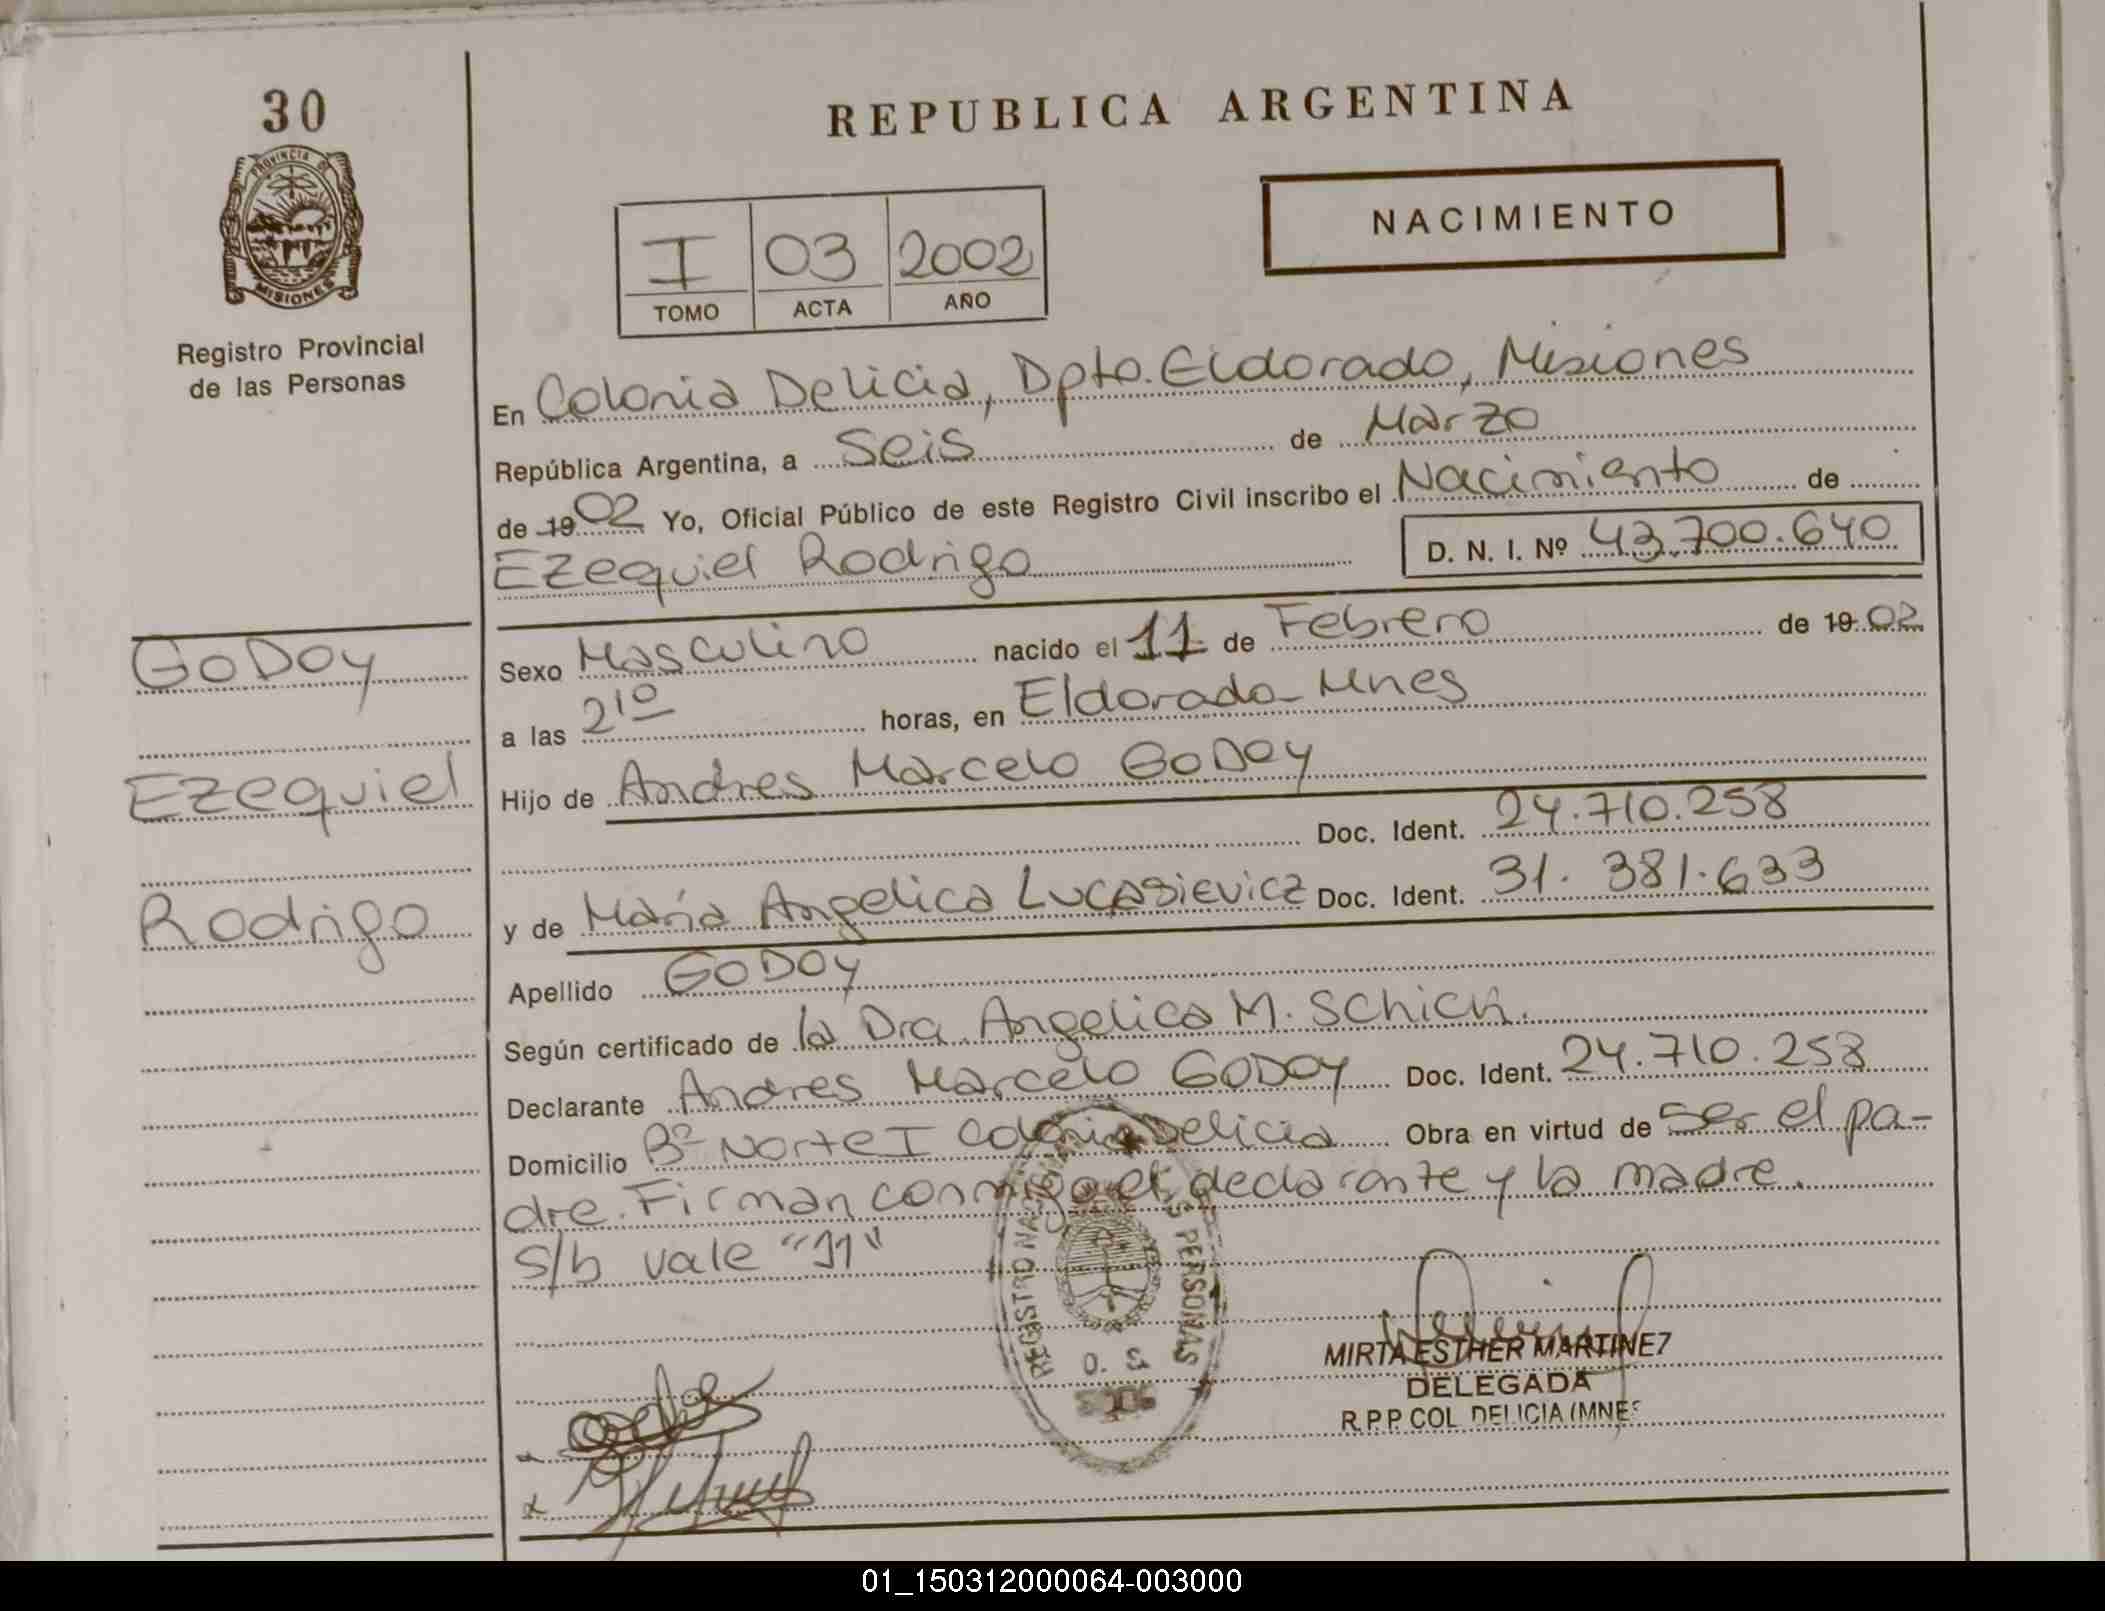 30
PROVINCIA DE
MISIONES
Registro Provincial
de las Personas
REPUBLICA ARGENTINA
NACIMIENTO
I 03 2002
TOMO ACTA AÑO
En Colonia Delicia, Dpto. Eldorado, Misiones
República Argentina, a Seis de Marzo
de 19 02 Yo, Oficial Público de este Registro Civil inscribo el Nacimiento de
Ezequiel Rodrigo D. N. I. Nº 43.700.640
GODOY
Ezequiel
Rodrigo
Sexo Masculino nacido el 11 de Febrero de 19 02
a las 21º horas, en Eldorado - Mnes
Hijo de Andres Marcelo GODOY
Doc. Ident. 24.710.258
y de María Angelica LUCASIEVICZ Doc. Ident. 31.381.633
Apellido GODOY
Según certificado de la Dra. Angelica M. Schick.
Declarante Andres Marcelo GODOY Doc. Ident. 24.710.258
Domicilio Bº Norte I Colonia Delicia Obra en virtud de ser el pa-
dre. Firman conmigo el declarante y la madre.
s/b vale "11"
REGISTRO PERSONAS
MIRTA ESTHER MARTINEZ
DELEGADA
R.P.P. COL DELICIA (MNES
01_150312000064-003000